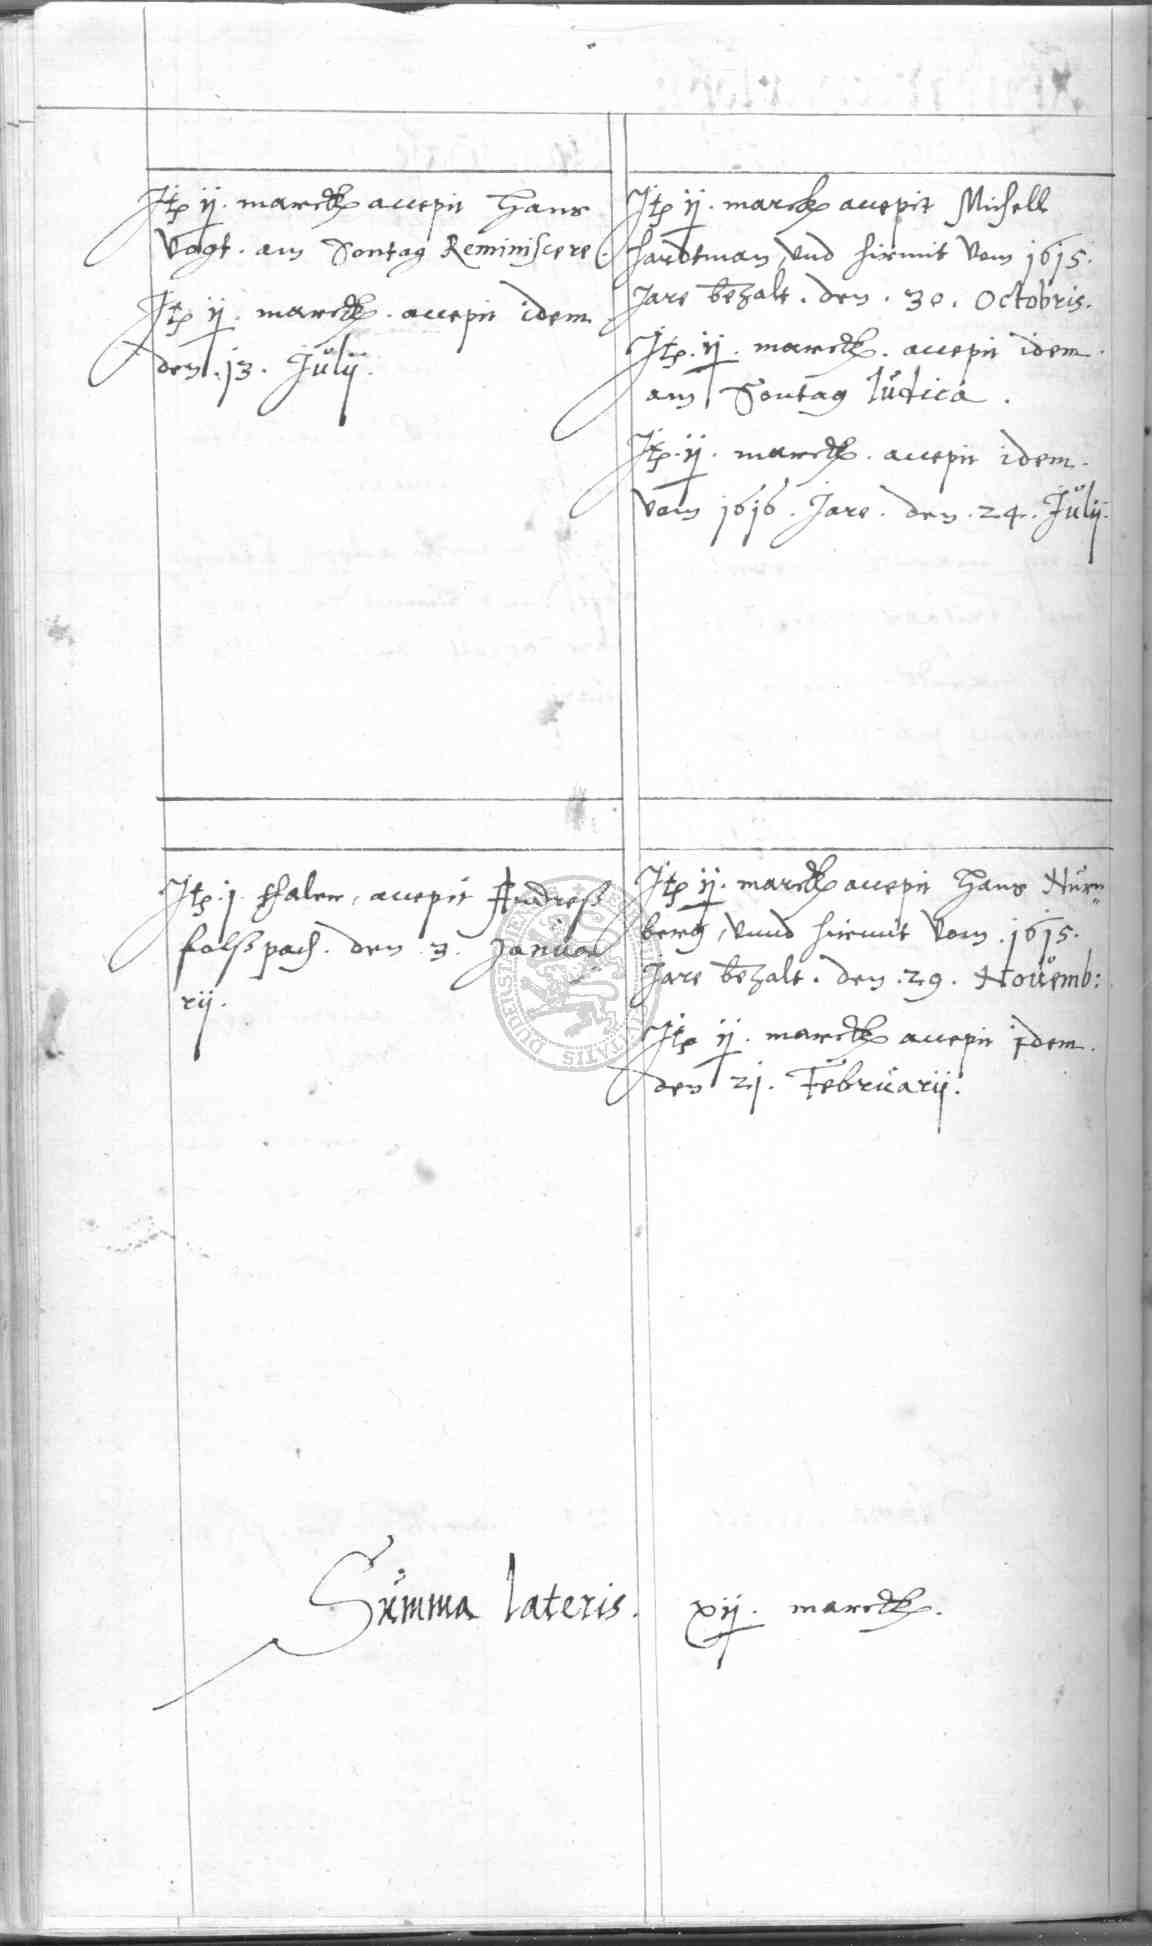 Itp ij. marck accepit Hans
Vogt. am Sontag Reminiscere.
Itp ij. marck. accepit idem
den. 13. Julij.
Itp ij. marck accepit Michell
Hardtman, vnd hirmit vom 1615.
Jare bezalt. den. 30. Octobris.
Itp. ij. marck. accepit idem.
am Sontag Iudica.
Itp. ij. marck. accepit idem.
vom 1616. Jare. den. 24. Julij.
Itp. j. thaler, accepit Andreß
den. 3. Janua
rij.
Itp ij. marck accepit Hans Nurn„
berg, vnnd hirmit vom. 1615.
Jare bezalt. den. 29. Novemb:
Itp ij. marck accepit idem.
den 21. Februarij.
Summa lateris. xij. marck.